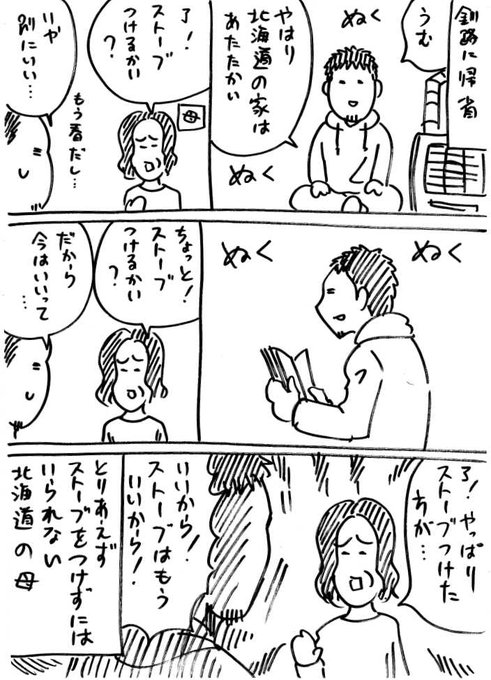 釧路に帰省
うむ
ぬく
やはり
北海道の家は
あたたかい
ぬく
了!
ストーブ
つけるかい
?
母
いや
別にいい…
もう春だし…
ぬく
ぬく
ちょっと!
ストーブ
つけるかい
?
だから
今はいいって
…
了!やっぱり
ストーブつけた
ちが…
いいから!
ストーブはもう
いいから!
とりあえず
ストーブをつけずには
いられない
北海道の母